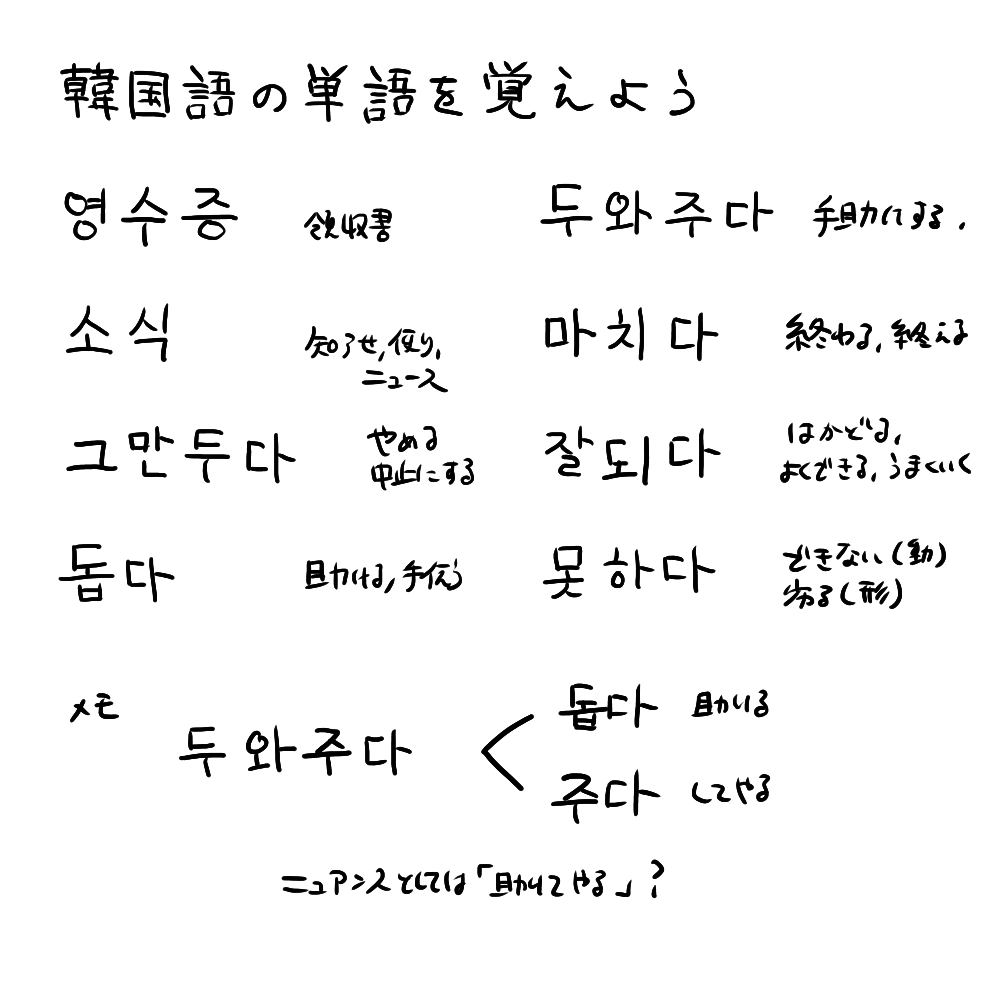 韓国語の単語を覚えよう
영수증 領収書 두와주다 手助けする.
소식 知らせ,便り, 마치다 終わる,終える
ニュース
그만두다 やめる 잘되다 はかどる,
中止にする よくできる,うまくいく
돕다 助ける,手伝う 못하다 できない(動)
劣る(形)
メモ
두와주다 < 돕다 助ける
주다 してやる
ニュアンスとしては「助けてやる」?